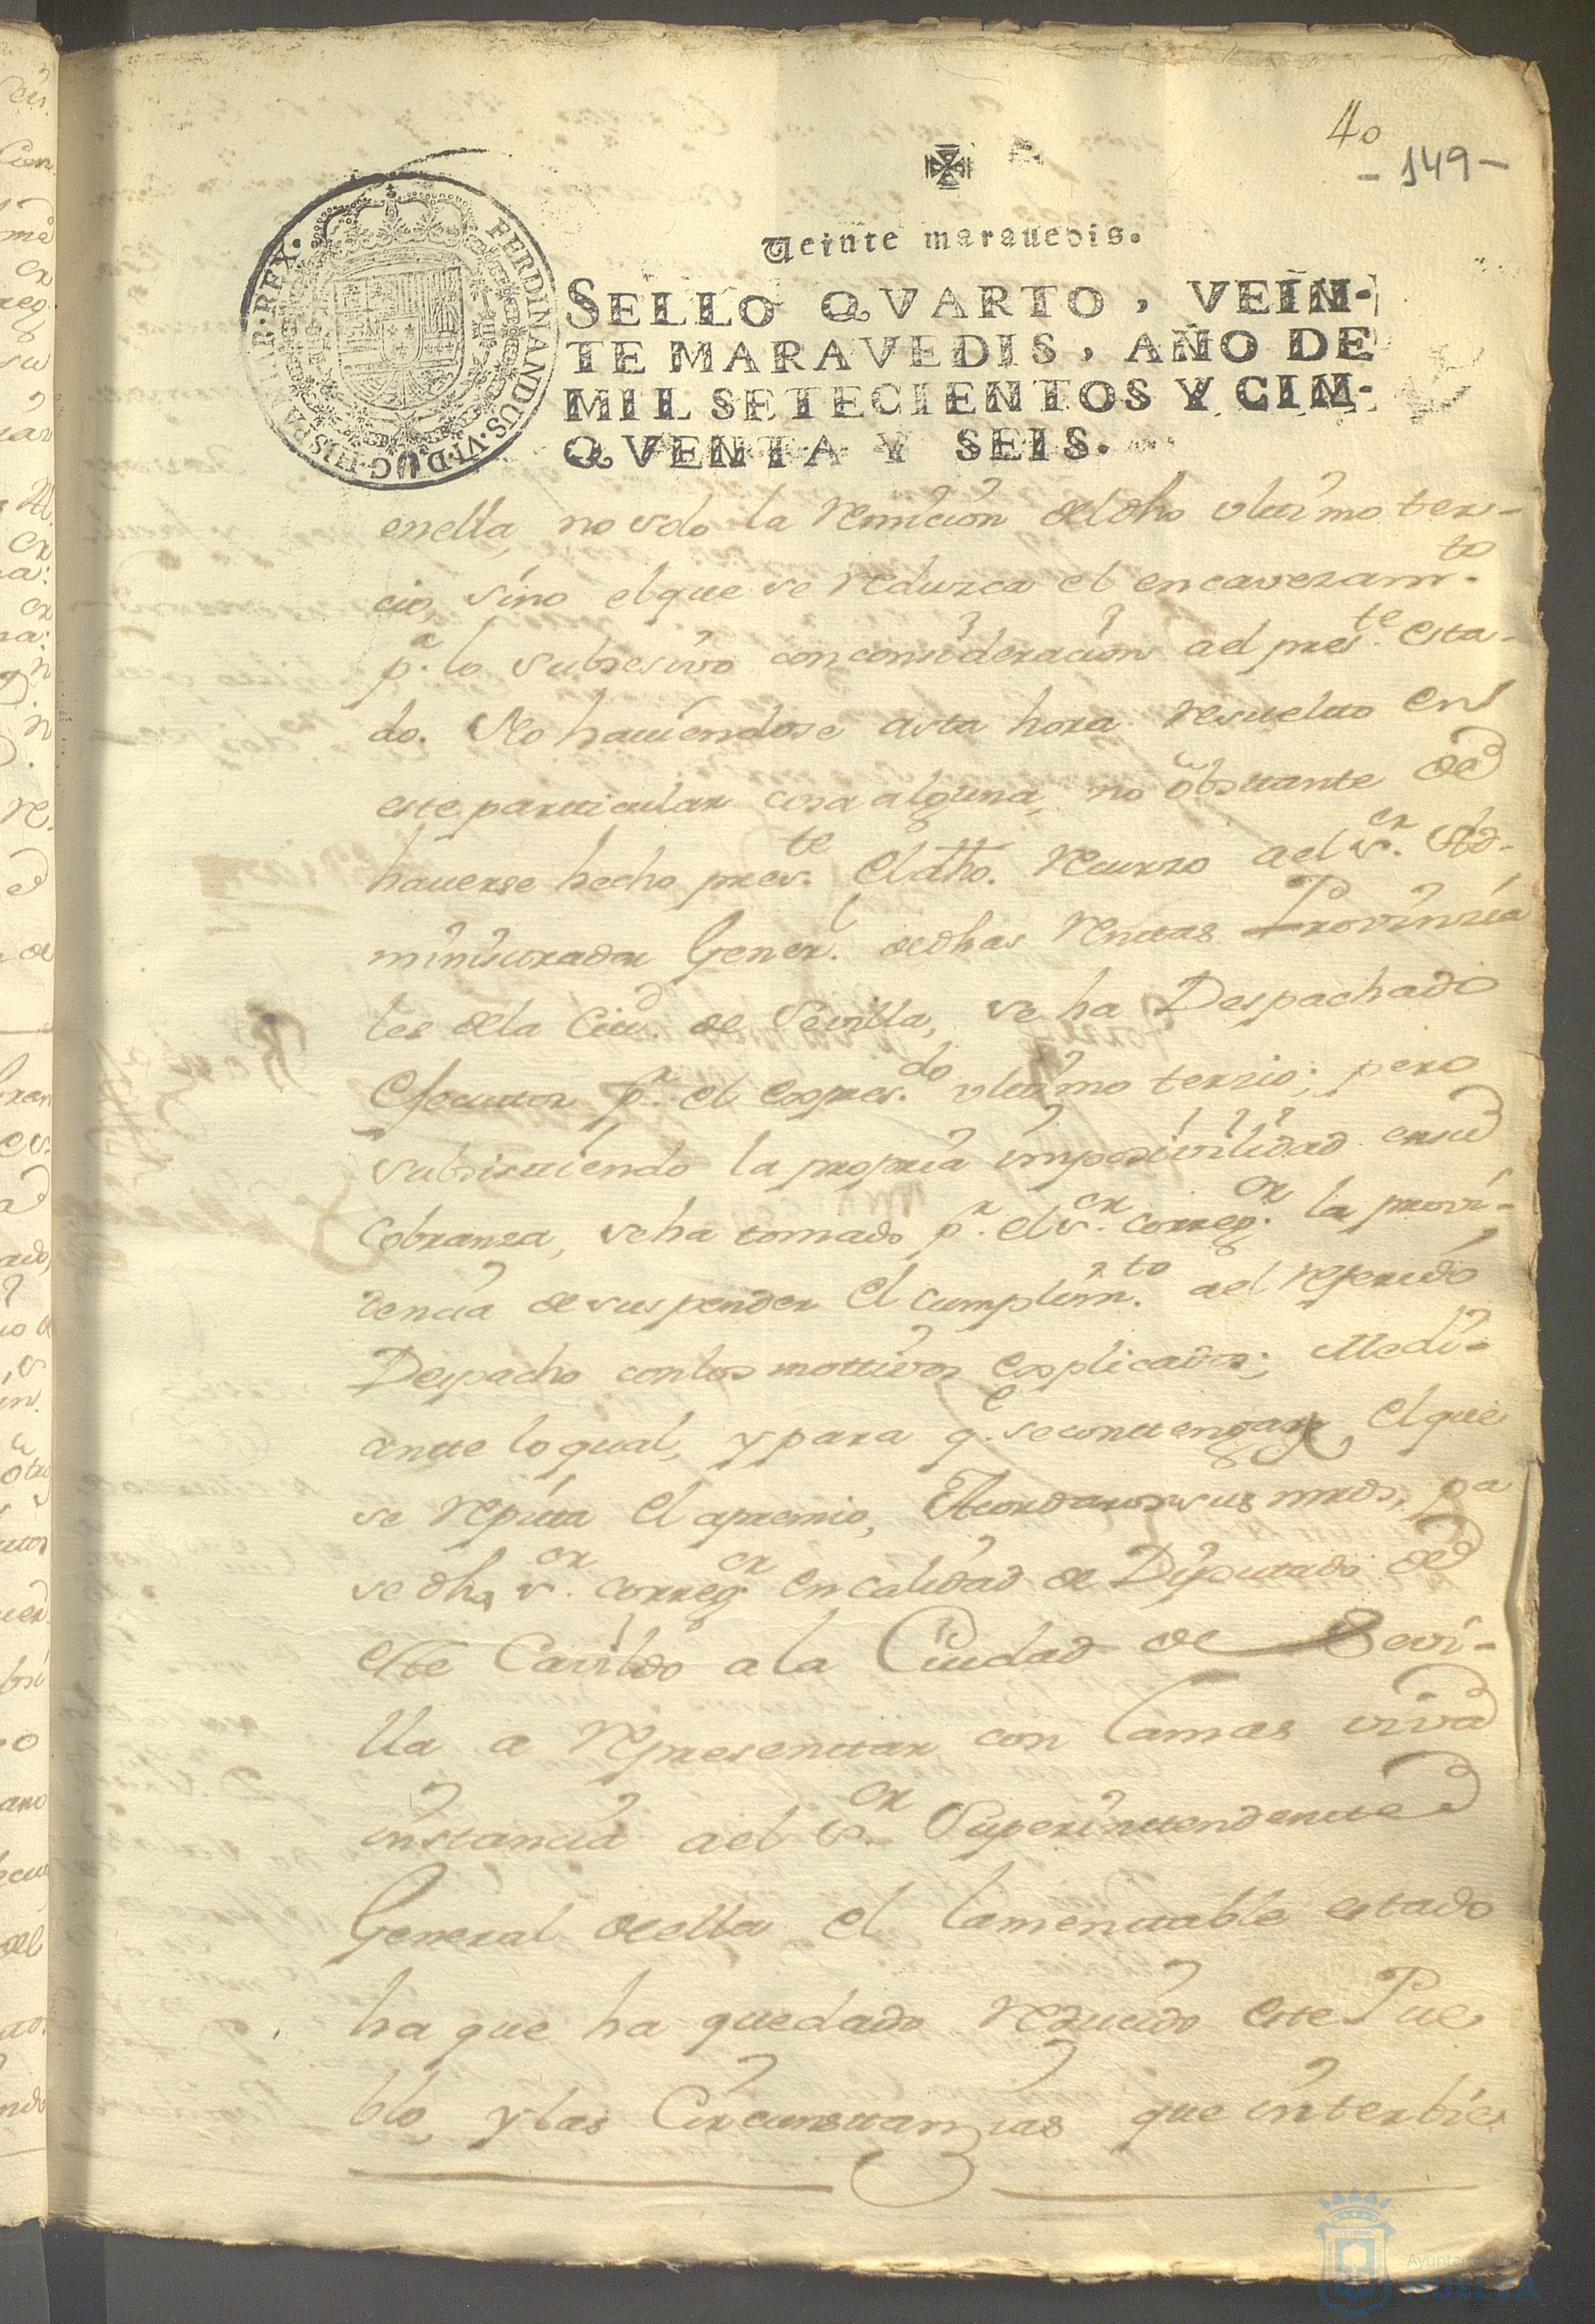 40
- 149 -
Veinte marauedis.
SELLO QVARTO, VEIN-
TE MARAVEDIS, AÑO DE
MIL SETECIENTOS Y CIN-
QVENTA Y SEIS.
FERDINANDUS·VI·D·G·HISPANIAR·REX·
enella, no solo la remicion del dho vltimo ter-
cio, sino elque se reduzca el encavezamto.
pa. lo subsesivo con consideracion ael preste. esta-
do. No haviendose asta hora resuelto en
este particular cosa alguna, no obsttante de
haverse hecho preste. el dho. recurzo ael sor. Ad-
ministrador Generl. dedhas renttas Provinzia
les dela Ciud. de Sevilla, se ha Despachado
Executor pr. el expresdo. vltimo terzio; pero
subsistiendo la propria imposivilidad ensu
Cobranza, se ha tomado pr. el sor. correger. la provi-
dencia de suspender el cumplimto. ael referido
Despacho conlos mottivos explicados; Medi-
ante lo qual, y para qe. se conttenga, el que
se repitta el apremio, Acordaron sus mrds, pa
se dho sor. correger. en calidad de Diputado de
este Cavildo a la Ciudad de Sevi-
lla a representtar con lamas viva
instancia ael sor. Superinttendentte
General deella el lamenttable estado
ha que ha quedado reducido este Pue
blo, y las Circunsttanzias que interbie
Ayuntamiento
HUELVA